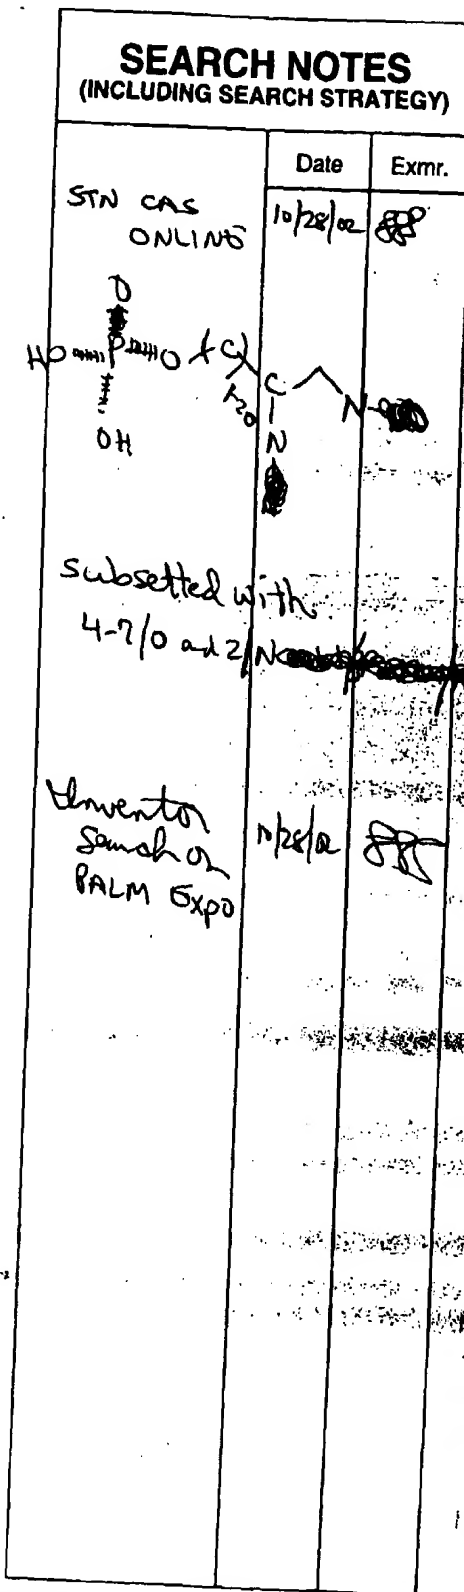 SEARCH NOTES
(INCLUDING SEARCH STRATEGY)
Date Exmr.
STN CAS
ONLINE
10/28/02
O
HO P O (C)
1-20
C N
OH
N
subsetted with
4-7/O and 2/N
Inventor
Search on
PALM Expo
10/28/02